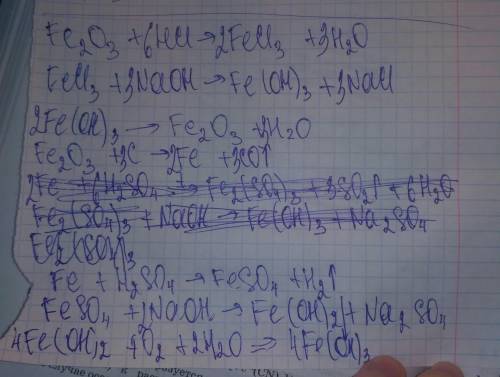 Fe₂O₃ + 6HCl → 2FeCl₃ + 3H₂O
FeCl₃ + 3NaOH → Fe(OH)₃ + 3NaCl
2Fe(OH)₃ → Fe₂O₃ + 3H₂O
Fe₂O₃ + 3C → 2Fe + 3CO↑
2Fe + 6H₂SO₄ → Fe₂(SO₄)₃ + 3SO₂↑ + 6H₂O
Fe₂(SO₄)₃ + NaOH → Fe(OH)₃ + Na₂SO₄
Fe + H₂SO₄ → FeSO₄ + H₂↑
FeSO₄ + 2NaOH → Fe(OH)₂↓ + Na₂SO₄
4Fe(OH)₂ + O₂ + 2H₂O ⇒ 4Fe(OH)₃